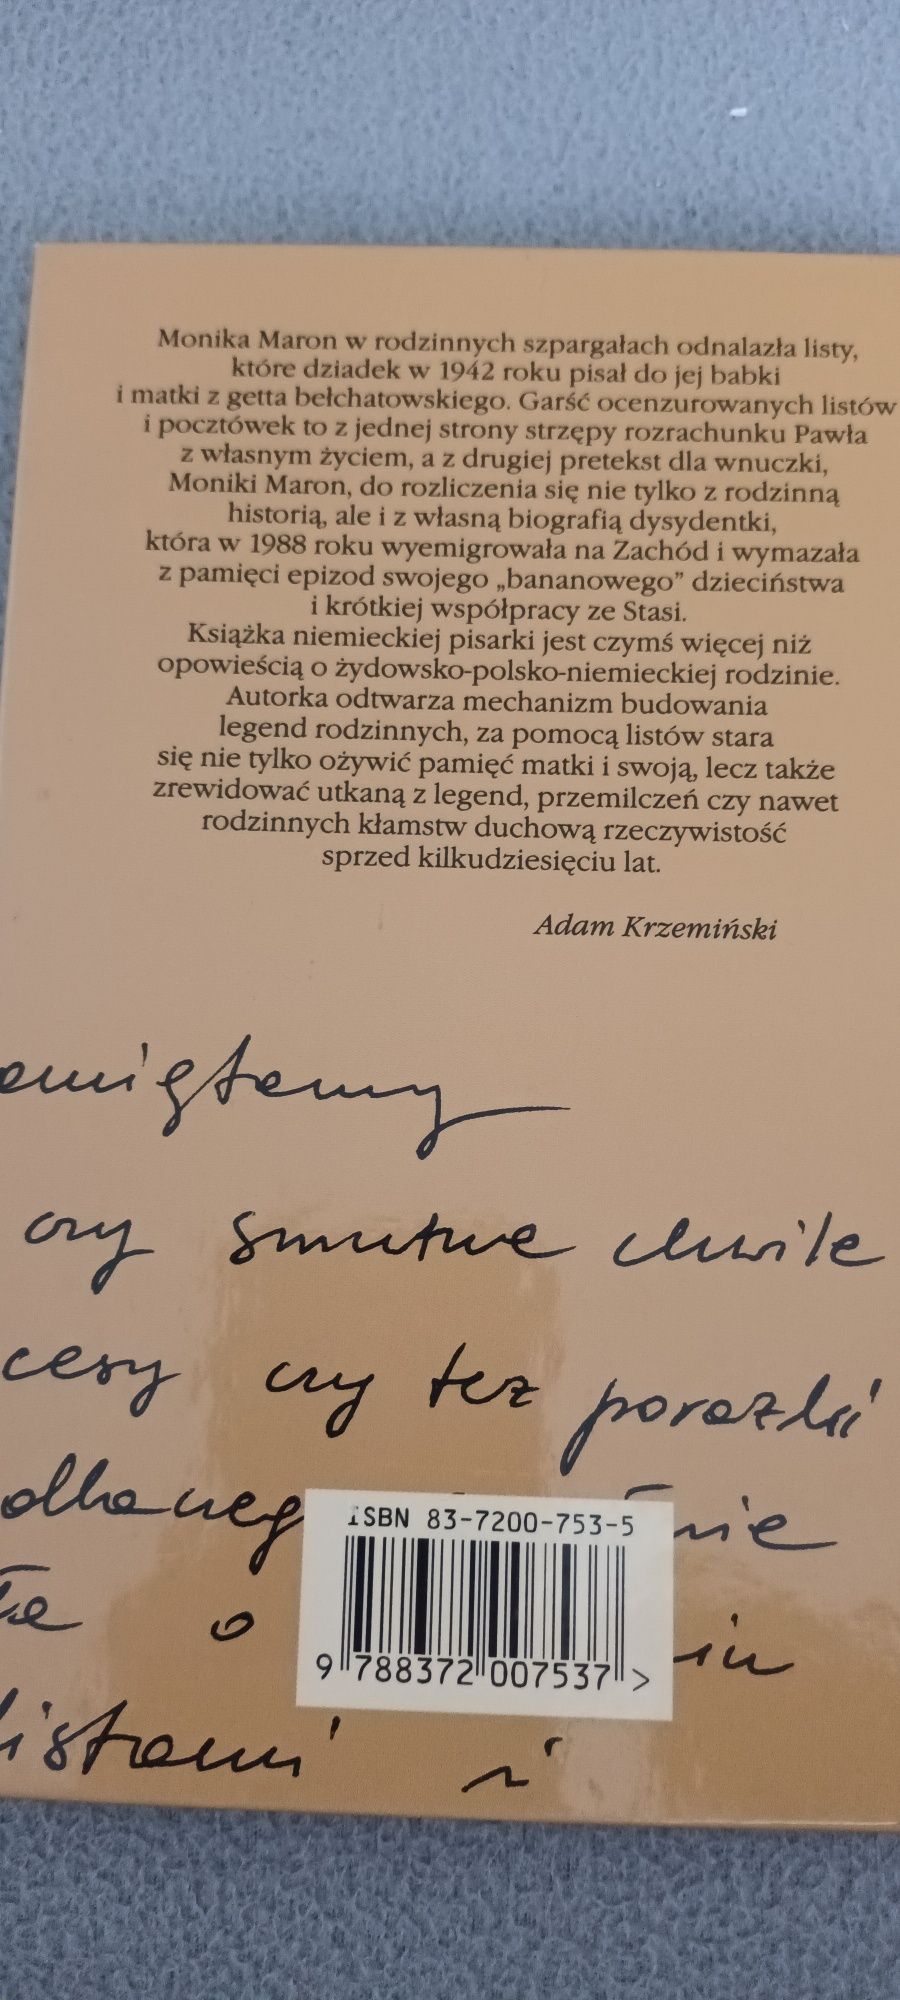 Monika Maron w rodzinnych szpargałach odnalazła listy,
które dziadek w 1942 roku pisał do jej babki
i matki z getta bełchatowskiego. Garść ocenzurowanych listów
i pocztówek to z jednej strony strzępy rozrachunku Pawła
z własnym życiem, a z drugiej pretekst dla wnuczki,
Moniki Maron, do rozliczenia się nie tylko z rodzinną
historią, ale i z własną biografią dysydentki,
która w 1988 roku wyemigrowała na Zachód i wymazała
z pamięci epizod swojego „bananowego” dzieciństwa
i krótkiej współpracy ze Stasi.
Książka niemieckiej pisarki jest czymś więcej niż
opowieścią o żydowsko-polsko-niemieckiej rodzinie.
Autorka odtwarza mechanizm budowania
legend rodzinnych, za pomocą listów stara
się nie tylko ożywić pamięć matki i swoją, lecz także
zrewidować utkaną z legend, przemilczeń czy nawet
rodzinnych kłamstw duchową rzeczywistość
sprzed kilkudziesięciu lat.
Adam Krzemiński
amiętamy
czy smutne chwile
cesy czy też porażki
o
listami i
ISBN 83-7200-753-5
9 788372 007537 >